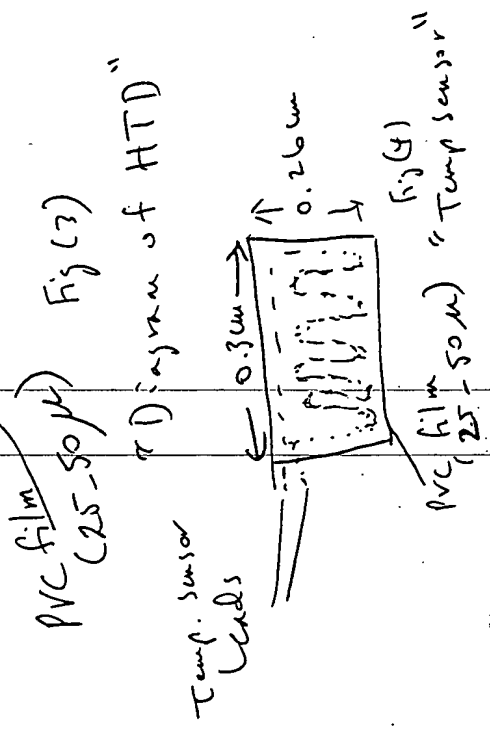 PVC film
(25-50 μ)
Fig (3)
"Diagram of HTD"
Temp. sensor
Leads
0.3 cm
0.26 cm
PVC film
(25-50 μ)
Fig (4)
"Temp sensor"